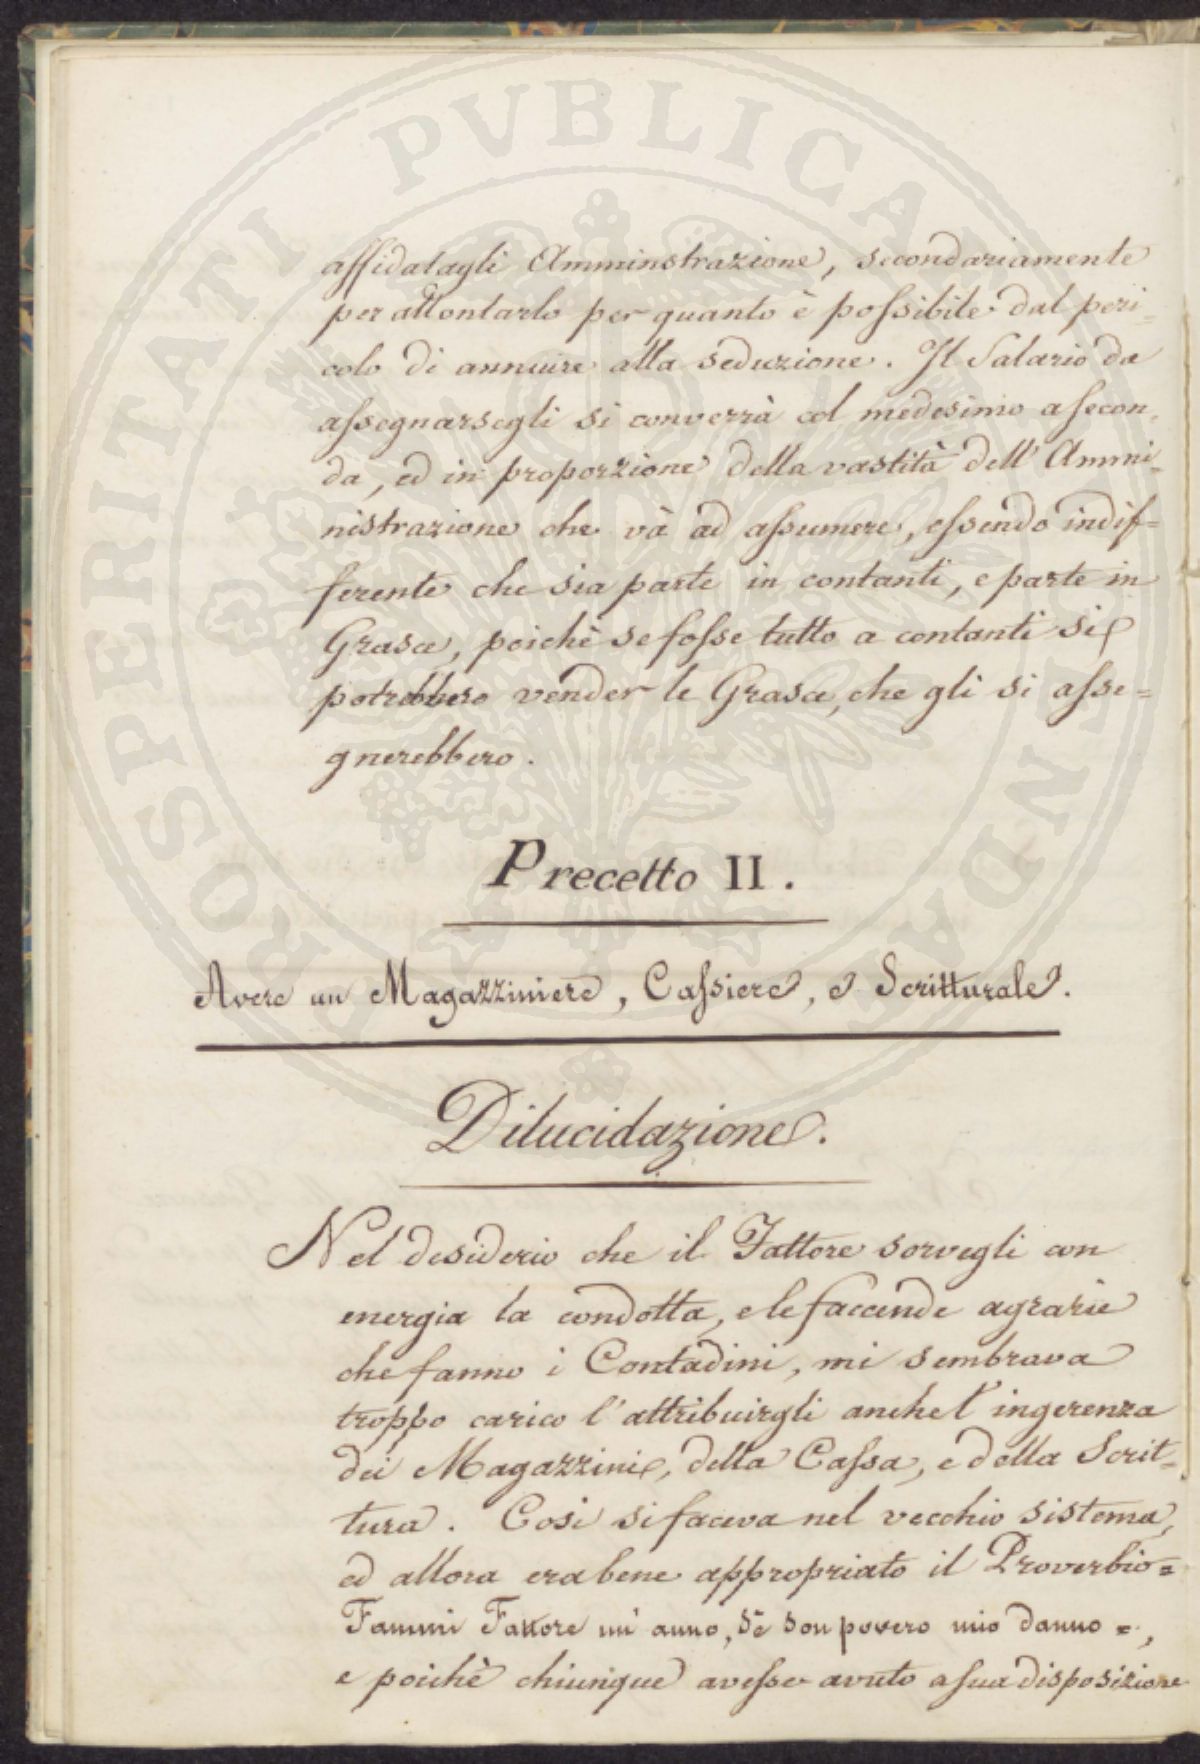 PROSPERITATI PVBLICAE AVGENDAE
affidatagli Amminstrazione, secondariamente
per allontarlo per quanto è possibile dal peri=
colo di annuire alla seduzione. Il Salario da
assegnarsegli si converrà col medesimo a secon=
da, ed in proporzione della vastità dell'Ammi=
nistrazione che và ad assumere, essendo indif=
ferente che sia parte in contanti, e parte in
Grasce, poichè se fosse tutto a contanti si
potrebbero vender le Grasce, che gli si asse=
gnerebbero.
Precetto II.
Avere un Magazziniere, Cassiere, e Scritturale.
Dilucidazione.
Nel desiderio che il Fattore sorvegli con
energia la condotta, e le faccende agrarie
che fanno i Contadini, mi sembrava
troppo carico l'attribuirgli anche l'ingerenza
dei Magazzini, della Cassa, e della Scrit=
tura. Così si faceva nel vecchio sistema,
ed allora era bene appropriato il Proverbio=
Fammi Fattore un' anno, sè son povero mio danno =,
e poichè chiunque avesse avuto a sua disposizione